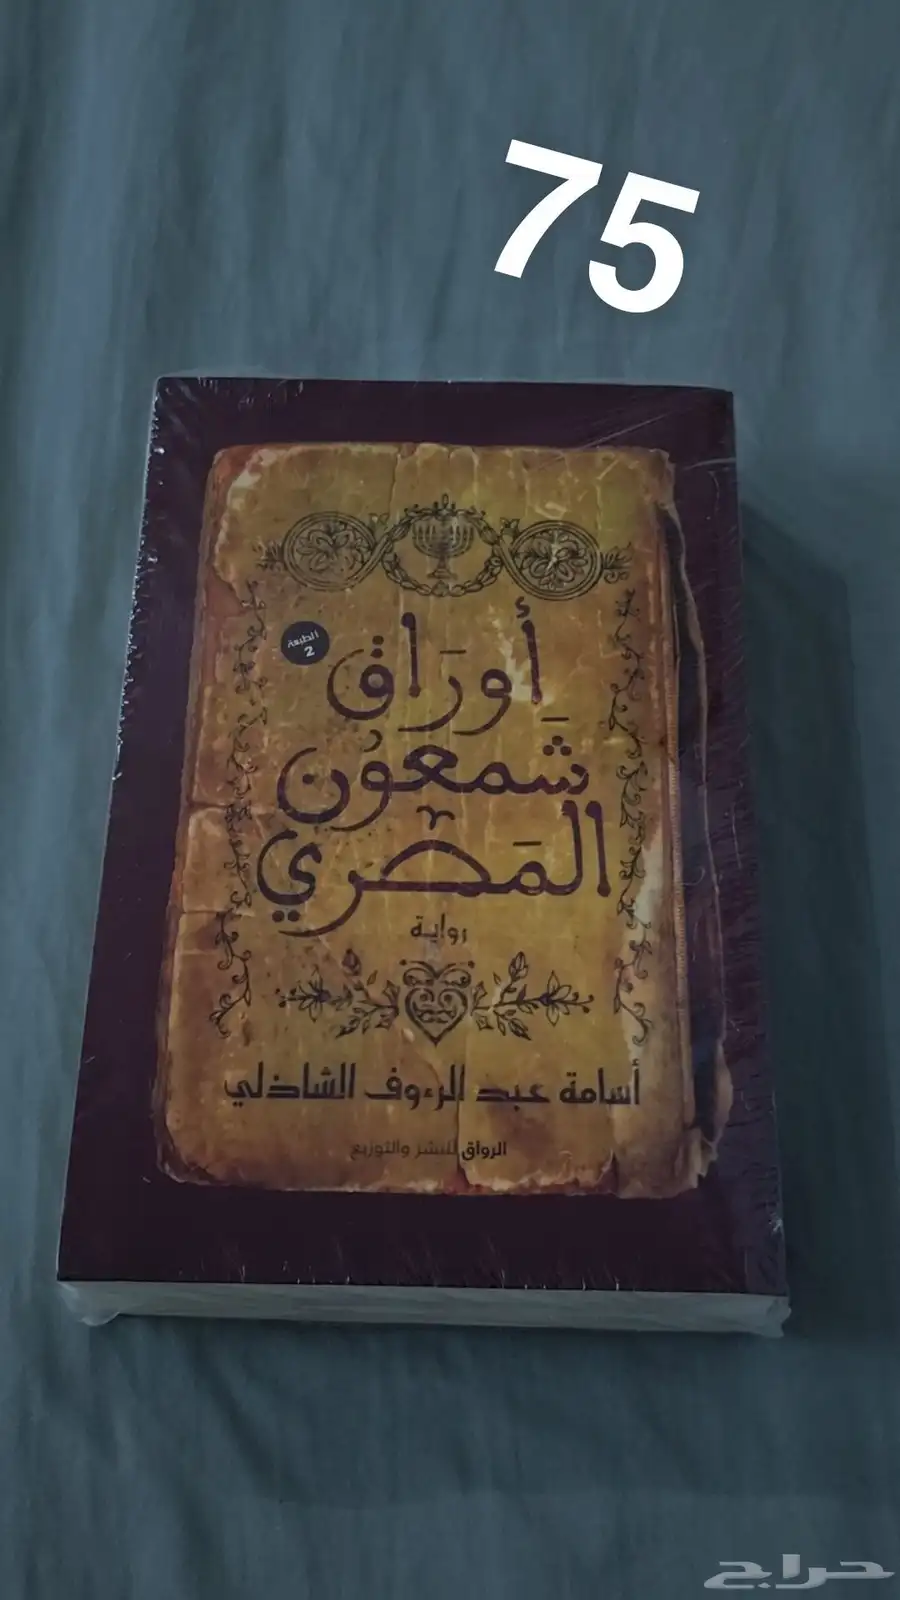 75
أوراق
الطبعة
2
شمعون
المصري
رواية
أسامة عبد الرءوف الشاذلي
الرواق للنشر والتوزيع
حراج